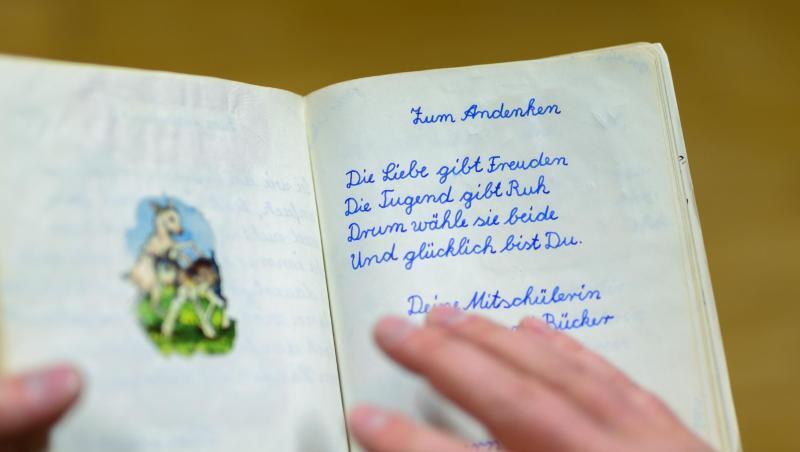 Zum Andenken
Die Liebe gibt Freuden
Die Tugend gibt Ruh
Drum wähle sie beide
Und glücklich bist Du.
Deine Mitschülerin
Bücker